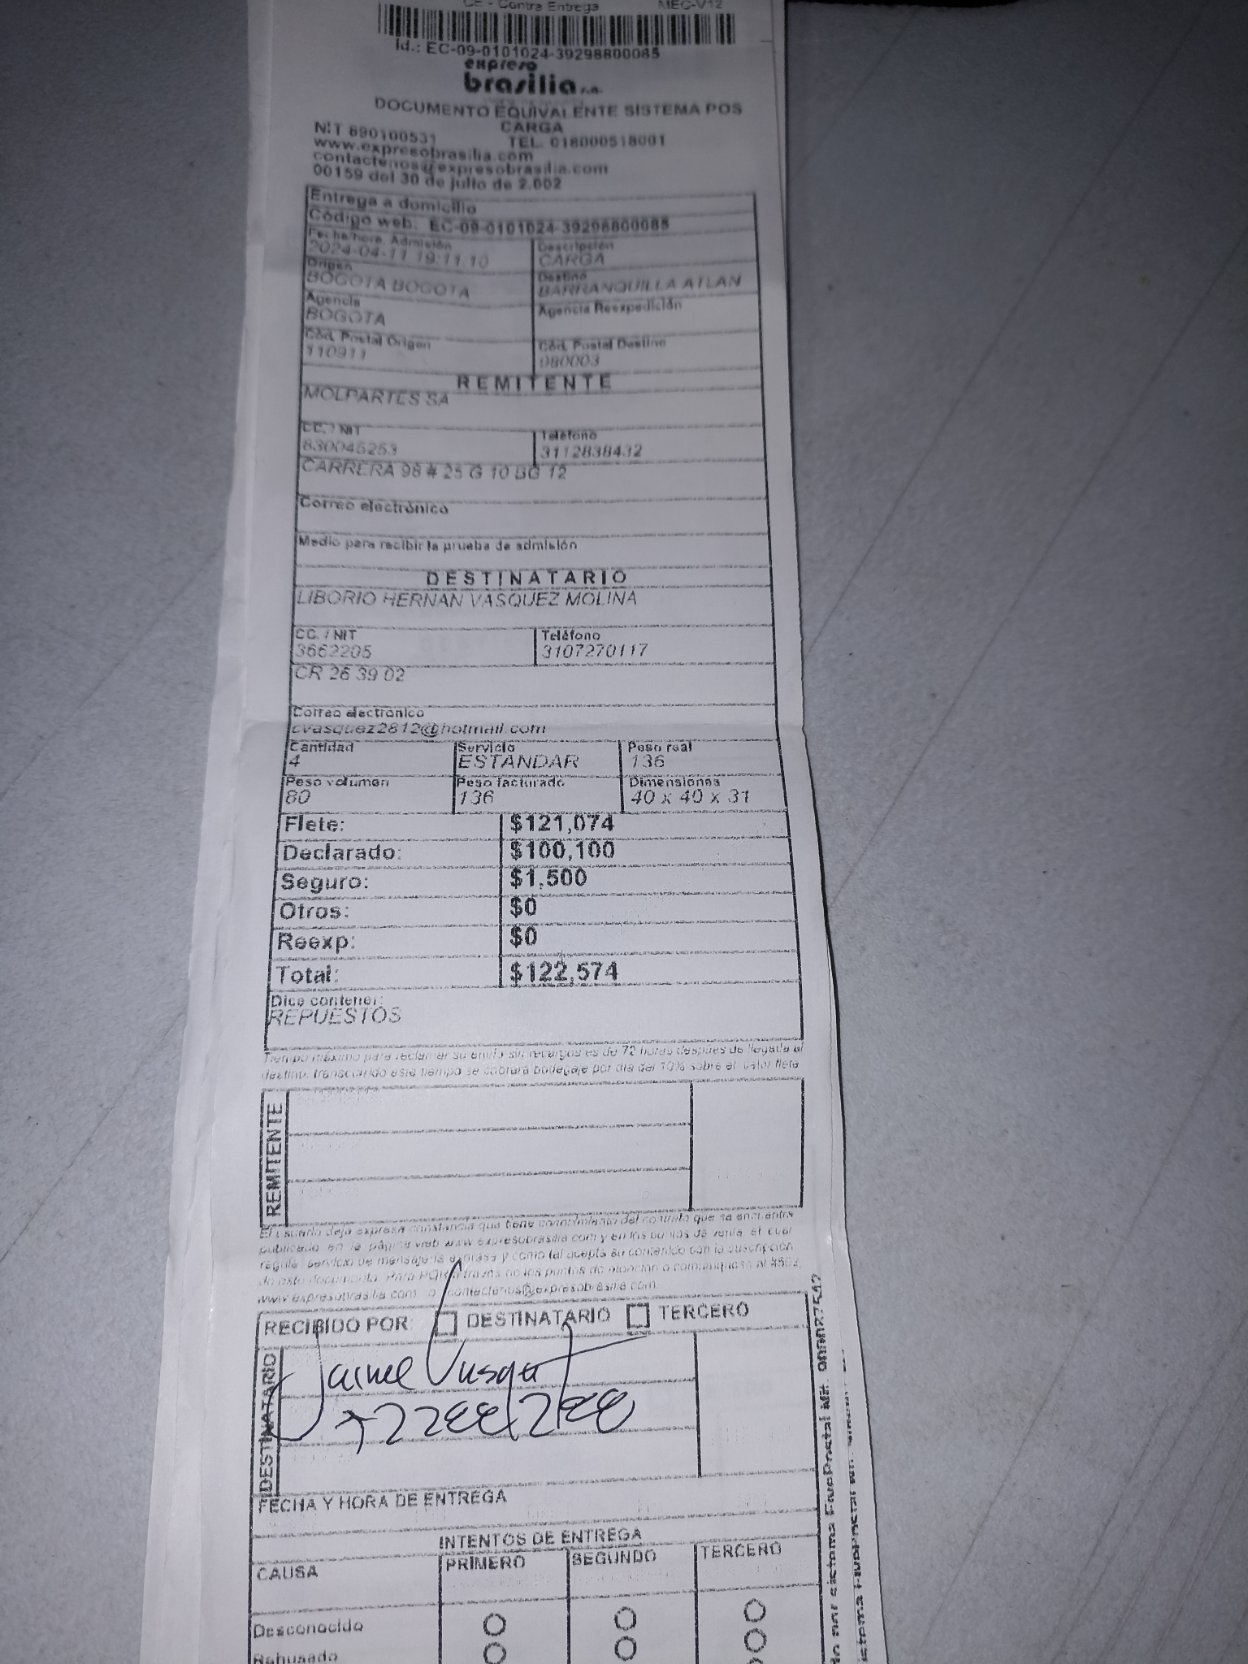 CE - Contra Entrega MEC-V12
Id.: EC-09-0101024-39298800085
expreso
brasilia s.a.
DOCUMENTO EQUIVALENTE SISTEMA POS
CARGA
NIT 890100531 TEL. 018000518001
www.expresobrasilia.com
contactenos@expresobrasilia.com
00159 del 30 de julio de 2.002
Entrega a domicilio
Código web: EC-09-0101024-39298800085
Fecha/hora. Admisión Descripción
2024-04-11 19:11:10 CARGA
Origen Destino
BOGOTA BOGOTA BARRANQUILLA ATLAN
Agencia Agencia Reexpedición
BOGOTA
Cód. Postal Origen Cód. Postal Destino
110911 080003
REMITENTE
MOLPARTES SA
CC. / NIT Teléfono
830045253 3112838432
CARRERA 98 # 25 G 10 BG 12
Correo electrónico
Medio para recibir la prueba de admisión
DESTINATARIO
LIBORIO HERNAN VASQUEZ MOLINA
CC. / NIT Teléfono
3662205 3107270117
CR 26 39 02
Correo electrónico
cvasquez2812@hotmail.com
Cantidad Servicio Peso real
4 ESTANDAR 136
Peso volumen Peso facturado Dimensiones
80 136 40 x 40 x 31
Flete: $121,074
Declarado: $100,100
Seguro: $1,500
Otros: $0
Reexp: $0
Total: $122,574
Dice contener:
REPUESTOS
Tiempo máximo para reclamar su envío sin recargos es de 72 horas después de llegada al
destino, transcurrido este tiempo se cobrará bodegaje por día del 10% sobre el valor flete
REMITENTE
El usuario deja expresa constancia que tiene conocimiento del contrato que se encuentra
publicado en la página web www.expresobrasilia.com y en los puntos de venta, el cual
regula servicio de mensajería expresa y como tal acepta su contenido con la suscripción
de este documento. Para PQR a través de los puntos de atención o comuníquese al
www.expresobrasilia.com o contactenos@expresobrasilia.com
RECIBIDO POR: DESTINATARIO TERCERO
DESTINATARIO
Jaime Vasquez
FECHA Y HORA DE ENTREGA
INTENTOS DE ENTREGA
CAUSA PRIMERO SEGUNDO TERCERO
Desconocido
Rehusado